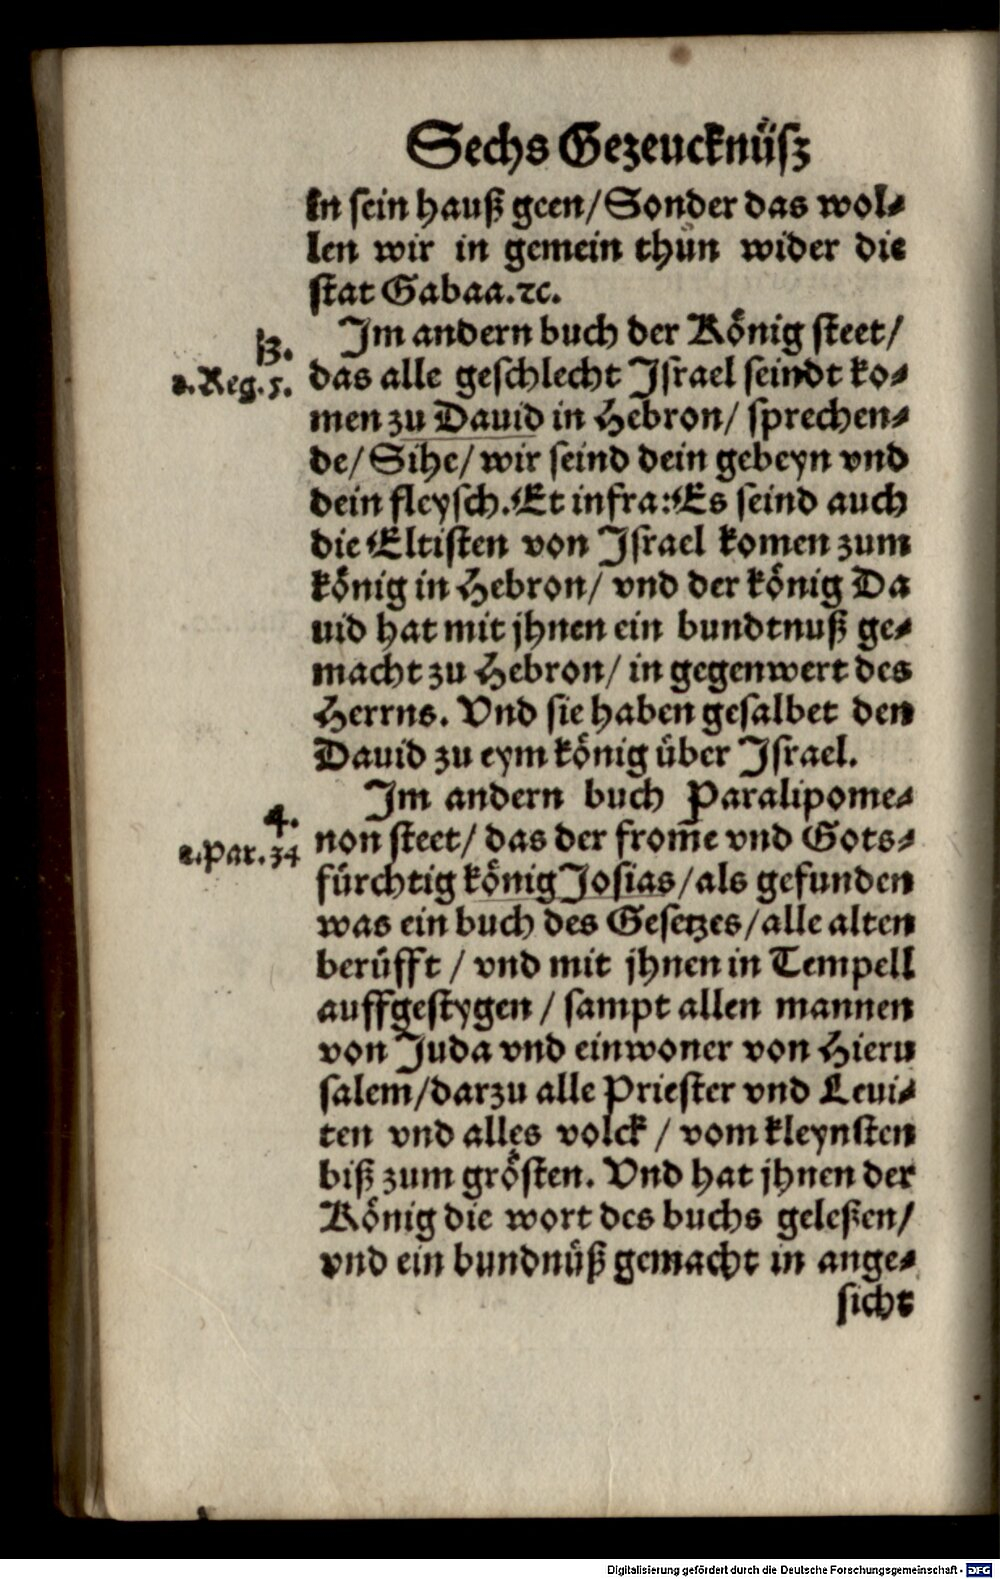 Sechs Gezeucknüsz
in sein hauß geen/ Sonder das wol⸗
len wir in gemein thun wider die
stat Gabaa.ꝛc.
3.
Im andern buch der König steet/
2.Reg.5.
das alle geschlecht Israel seindt ko⸗
men zu Dauid in Hebron/ sprechen⸗
de/ Sihe/ wir seind dein gebeyn vnd
dein fleysch. Et infra: Es seind auch
die Eltisten von Israel komen zum
könig in Hebron/ vnd der könig Da
uid hat mit jhnen ein bundtnuß ge⸗
macht zu Hebron/ in gegenwert des
Herrns. Vnd sie haben gesalbet den
Dauid zu eym könig über Israel.
Im andern buch Paralipome⸗
4.
2.Par.34
non steet/ das der from̄e vnd Gots⸗
fürchtig könig Josias/ als gefunden
was ein buch des Gesetzes/ alle alten
berüfft / vnd mit jhnen in Tempell
auffgestygen / sampt allen mannen
von Juda vnd einwoner von Hieru
salem/ darzu alle Priester vnd Leui⸗
ten vnd alles volck / vom kleynsten
biß zum grösten. Vnd hat jhnen der
König die wort des buchs geleßen/
vnd ein bundnüß gemacht in ange⸗
sicht
Digitalisierung gefördert durch die Deutsche Forschungsgemeinschaft - DFG